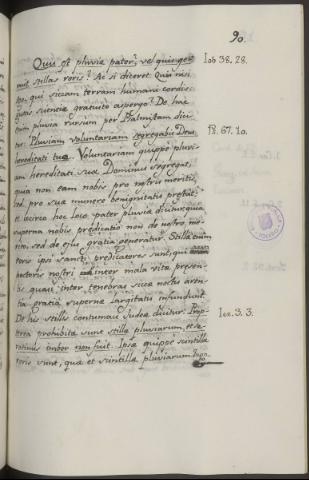 90.
Quis est pluviæ pater? vel quis genu-
it stillas roris? Ac si diceret: Quis nisi
ego, qui siccam terram humani cordis
guttis scientiæ gratuito aspergo? De hac
enim pluvia rursum per Psalmistam dici-
tur: Pluviam voluntariam segregabis Deus
hereditati tuæ. Voluntariam quippe pluvi-
am hereditati suæ Dominus segregat,
quia non eam nobis pro nostris meritis,
sed pro suæ munere benignitatis præstat,
et idcirco hoc loco pater pluviæ dicitur, quia
superna nobis prædicatio non de nostro me-
rito, sed de ejus gratia generatur. Stillæ enim
roris ipsi sancti prædicatores sunt, qui
pectoris nostri inter mala vitæ præsen-
tis quasi inter tenebras siccæ noctis aren-
tia gratia supernæ largitatis infundunt.
De his stillis contumaci Judeæ dicitur: Prop-
terea prohibitæ sunt stillæ pluviarum, et se-
rotinus imber non fuit. Ipsæ quippe scintillæ
roris sunt, quæ et scintillæ pluviarum
Job 38. 28.
Ps. 67. 10.
Jer. 3. 3.